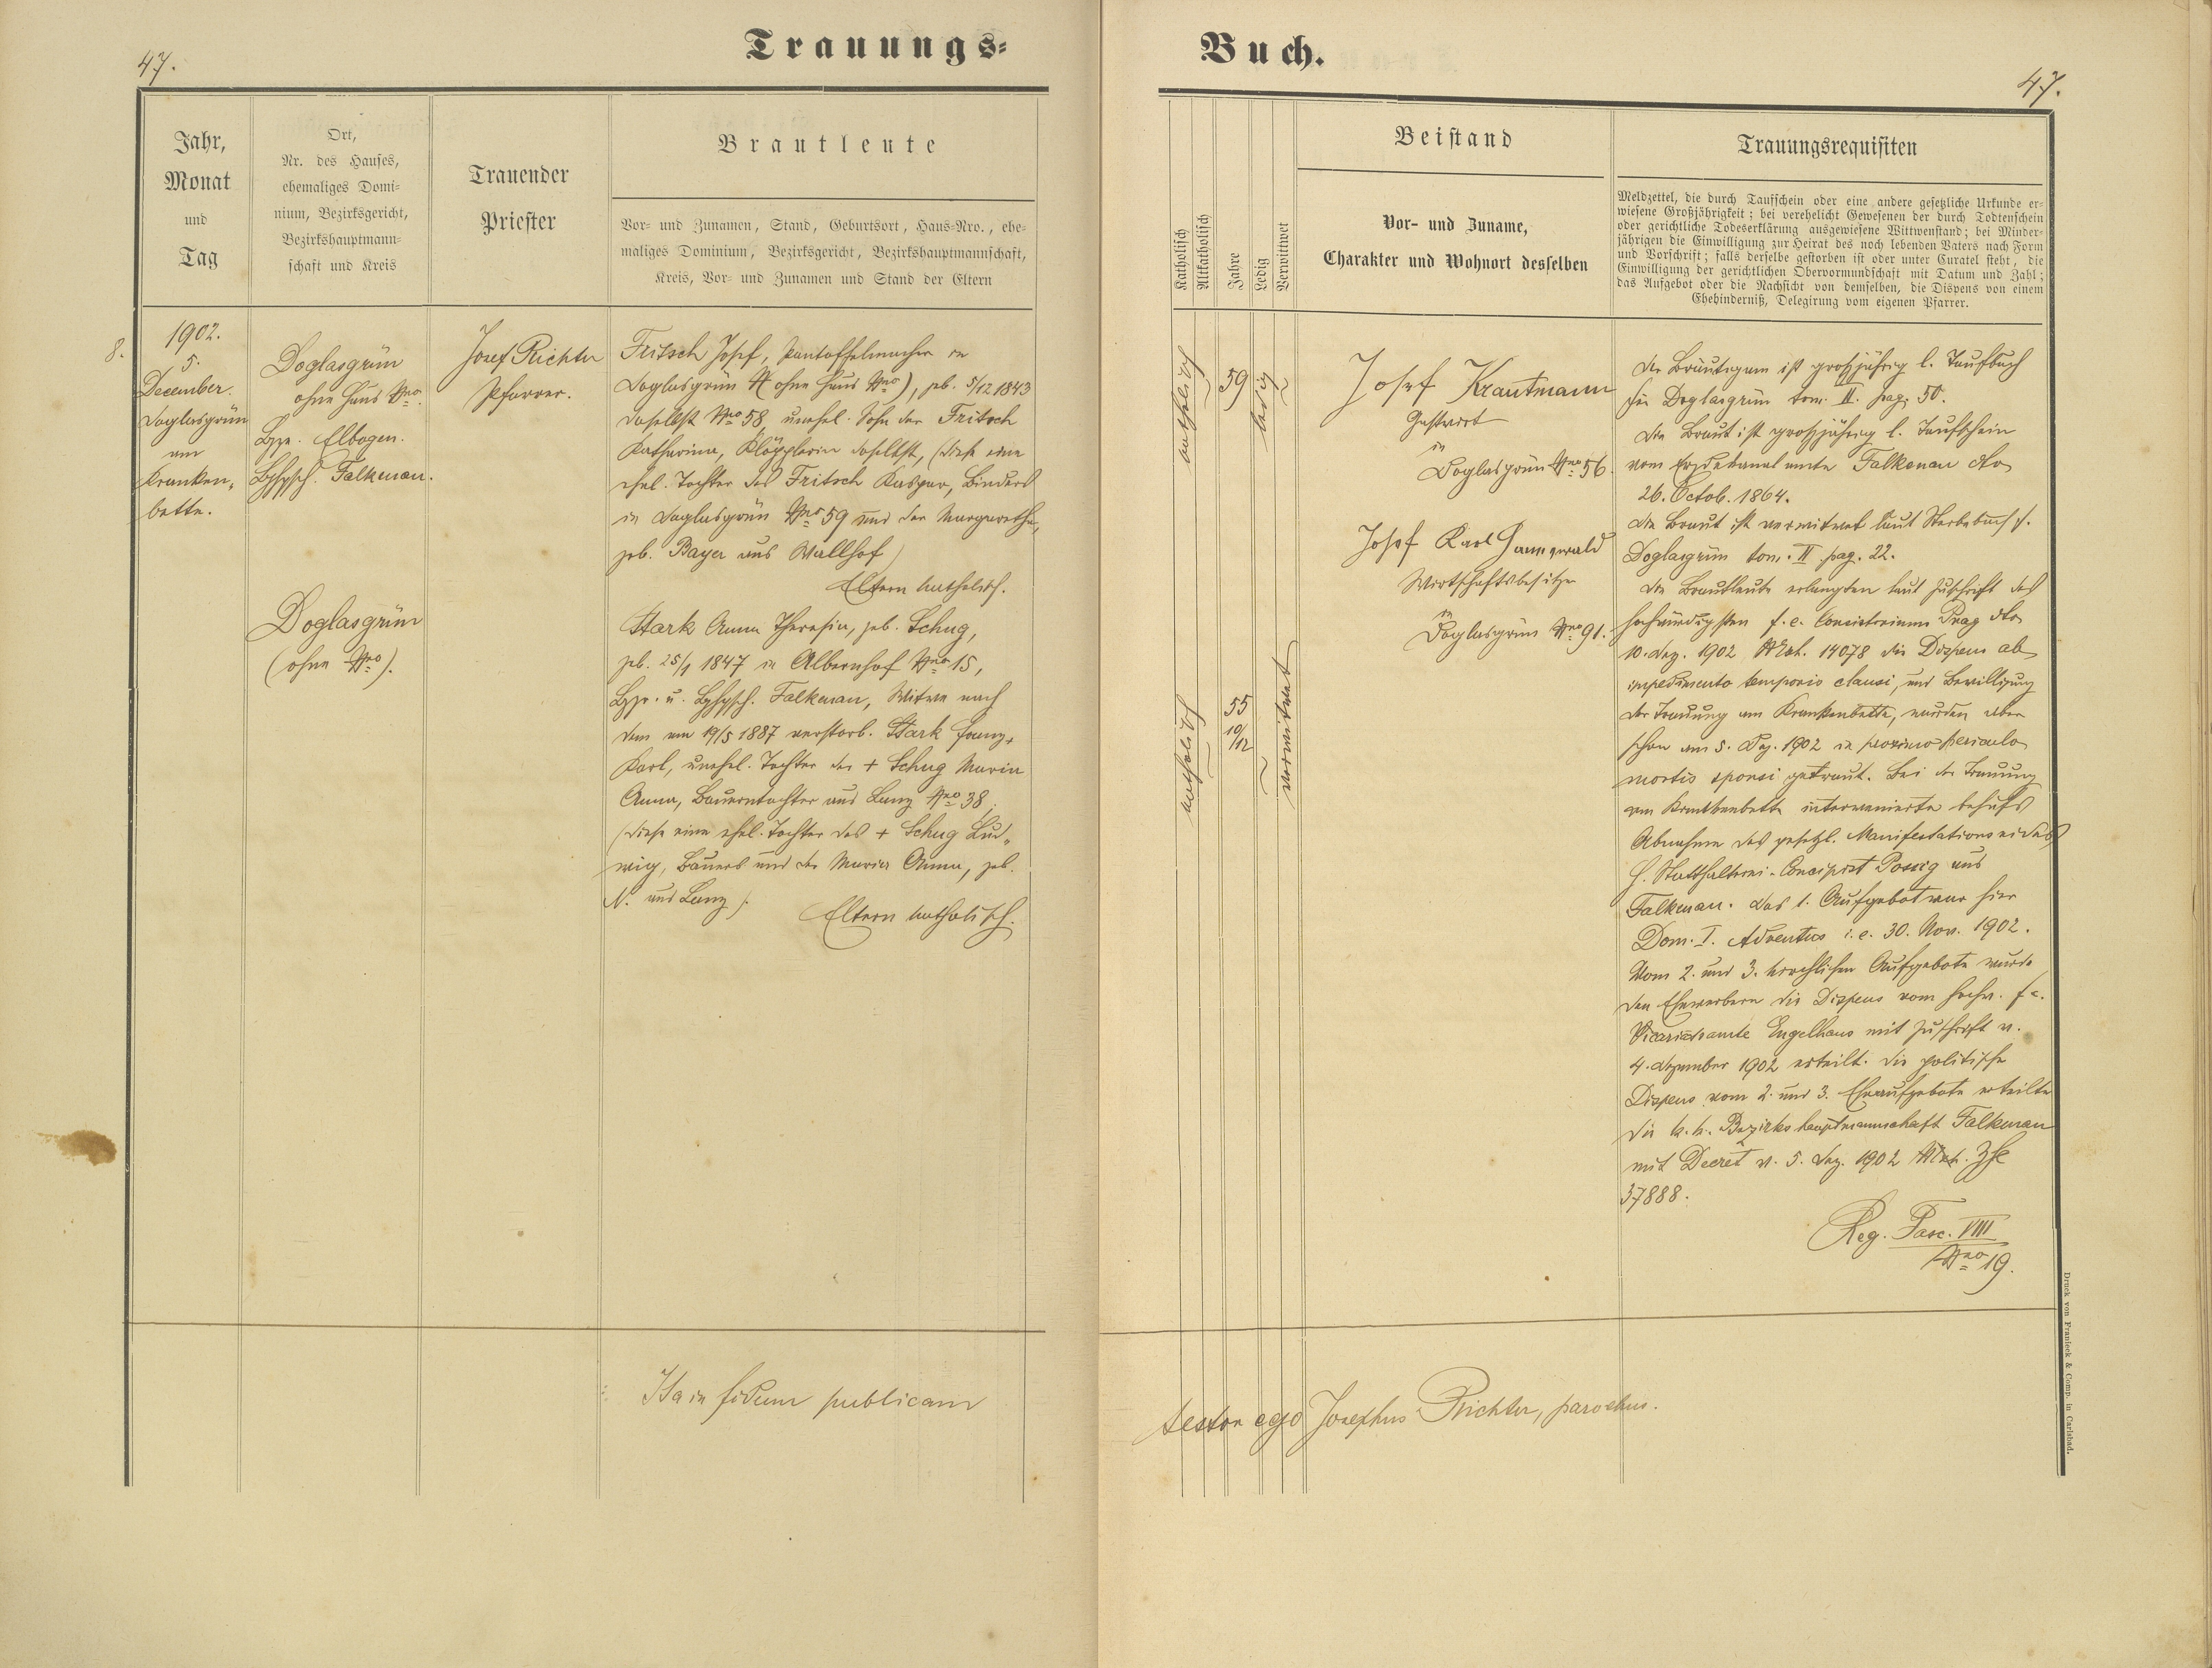 47.
Trauungs-
Jahr,
Monat
und
Tag
Ort,
Nr. des Hauses,
ehemaliges Domi-
nium, Bezirksgericht,
Bezirkshauptmann-
schaft und Kreis
Trauender
Priester
Brautleute
Vor- und Zunamen, Stand, Geburtsort, Haus-Nro., ehe-
maliges Dominium, Bezirksgericht, Bezirkshauptmannschaft,
Kreis, Vor- und Zunamen und Stand der Eltern
8.
1902.
5.
December.
Doglasgrün
am
Kranken-
bette.
Doglasgrün
ohne Haus Nro.
Bzge. Elbogen.
Bzhptsch. Falkenau.
Doglasgrün
(ohne Nro).
Josef Richter
Pfarrer.
Fritsch Josef, Pantoffelmacher in
Doglasgrün (ohne Haus Nro), geb. 5/12 1843
daselbst Nro 58, unehel. Sohn der Fritsch
Katharina, Klöpplerin daselbst, (diese eine
ehel. Tochter des Fritsch Kaspar, Binders
in Doglasgrün Nro 59 und der Margaretha,
geb. Bayer aus Wallhof)
Eltern katholisch.
Stark Anna Theresia, geb. Schug,
geb. 25/1 1847 in Albernhof Nro 15,
Bzge. u. Bzhptsch. Falkenau, Witwe nach
dem am 19/5 1887 verstorb. Stark Franz
Karl, unehel. Tochter der + Schug Maria
Anna, Bauerntochter aus Lanz Nro 38,
(diese eine ehel. Tochter des + Schug Lud-
wig, Bauers und der Maria Anna, geb.
N. aus Lanz).
Eltern katholisch.
Ita in fidem publicam
Buch.
47.
Katholisch
Altkatholisch
Jahre
Ledig
Verwittwet
Beistand
Vor- und Zuname,
Charakter und Wohnort desselben
Trauungsrequisiten
Meldzettel, die durch Taufschein oder eine andere gesetzliche Urkunde er-
wiesene Großjährigkeit; bei verehelicht Gewesenen der durch Todtenschein
oder gerichtliche Todeserklärung ausgewiesene Wittwenstand; bei Minder-
jährigen die Einwilligung zur Heirat des noch lebenden Vaters nach Form
und Vorschrift; falls derselbe gestorben ist oder unter Curatel steht, die
Einwilligung der gerichtlichen Obervormundschaft mit Datum und Zahl;
das Aufgebot oder die Nachsicht von demselben, die Dispens von einem
Ehehinderniß, Delegirung vom eigenen Pfarrer.
katholisch
59
ledig
katholisch
55
10/12
verwitwet
Josef Krautmann
Gastwirt
in
Doglasgrün Nro 56.
Josef Karl
Wirtschaftsbesitzer
in
Doglasgrün Nro 91.
Der Bräutigam ist großjährig l. Taufbuch
für Doglasgrün tom. II. pag. 50.
Die Braut ist großjährig l. Taufschein
vom Erzdekanalamte Falkenau dto
26. Octob. 1864.
Die Braut ist verwitwet laut Sterbebuch f.
Doglasgrün tom. II pag. 22.
Die Brautleute erlangten laut Zuschrift des
hochwürdigsten f. e. Consistoriums Prag dto
10. Dez. 1902 14078 die Dispens ab
impedimento temporis clausi, und Bewilligung
der Trauung am Krankenbette, wurden aber
schon am 5. Dez. 1902 in proximo periculo
mortis sponsi getraut. Bei der Trauung
am Krankenbette intervenierte behufs
Abnahme des gesetzl. Manifestationseides
H. Statthalterei-Concipist Possig aus
Falkenau. Das 1. Aufgebot war hier
Dom. I. Adventus i. e. 30. Nov. 1902.
Vom 2. und 3. kirchlichen Aufgebote wurde
den Ehewerbern die Dispens vom hochw. f. e.
Vicariatsamte Engelhaus mit Zuschrift v.
4. Dezember 1902 erteilt. Die politische
Dispens vom 2. und 3. Eheaufgebote erteilte
die k. k. Bezirkshauptmannschaft Falkenau
mit Decret v. 5. Dez. 1902
37888.
Reg. Fasc. VIII
Nro 19.
testor ego Josephus Richter, parochus.
Druck von Franieck & Comp. in Carlsbad.